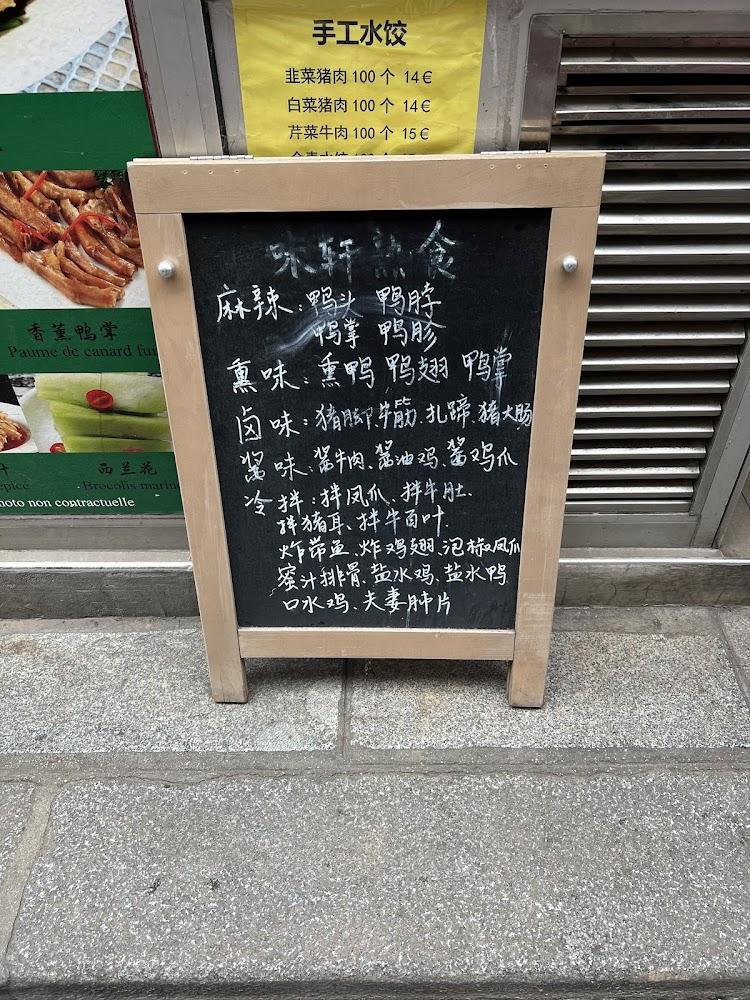 手工水饺
韭菜猪肉 100 个 14€
白菜猪肉 100 个 14€
芹菜牛肉 100 个 15€
味轩熟食
麻辣：鸭头 鸭脖
鸭掌 鸭胗
熏味：熏鸭 鸭翅 鸭掌
卤味：猪脚、牛筋、扎蹄、猪大肠
酱味：酱牛肉、酱油鸡、酱鸡爪
冷拌：拌凤爪、拌牛肚、
拌猪耳、拌牛百叶.
炸带鱼、炸鸡翅、泡椒凤爪
蜜汁排骨、盐水鸡、盐水鸭
口水鸡、夫妻肺片
香薰鸭掌
Paume de canard fum
西兰花
épicé
Brocolis marin
hoto non contractuelle